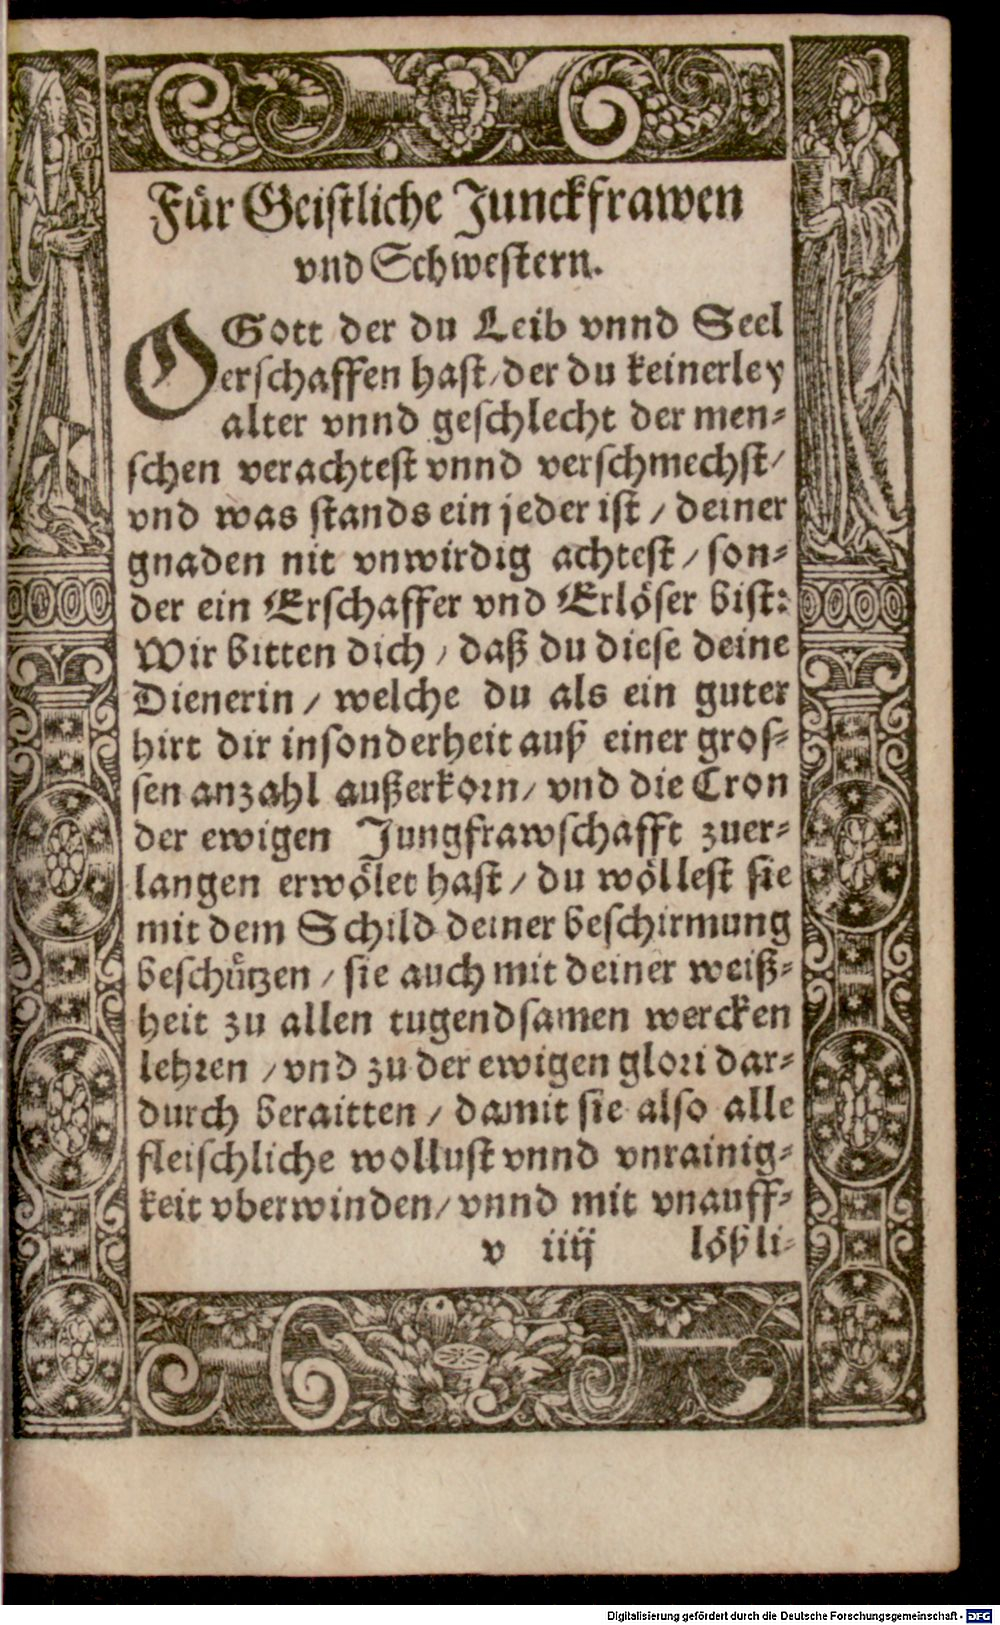 Für Geistliche Junckfrawen
vnd Schwestern.
O Gott der du Leib vnnd Seel
erschaffen hast/ der du keinerley
alter vnnd geschlecht der men⸗
schen verachtest vnnd verschmechst/
vnd was stands ein jeder ist / deiner
gnaden nit vnwirdig achtest / son⸗
der ein Erschaffer vnd Erlöser bist:
Wir bitten dich / daß du diese deine
Dienerin / welche du als ein guter
hirt dir insonderheit auß einer gros⸗
sen anzahl außerkorn/ vnd die Cron
der ewigen Jungfrawschafft zuer⸗
langen erwölet hast / du wöllest sie
mit dem Schild deiner beschirmung
beschützen / sie auch mit deiner weiß⸗
heit zu allen tugendsamen wercken
lehren / vnd zu der ewigen glori dar⸗
durch beraitten / damit sie also alle
fleischliche wollust vnnd vnrainig⸗
keit vberwinden/ vnnd mit vnauff⸗
v iiij lößli⸗
Digitalisierung gefördert durch die Deutsche Forschungsgemeinschaft - DFG